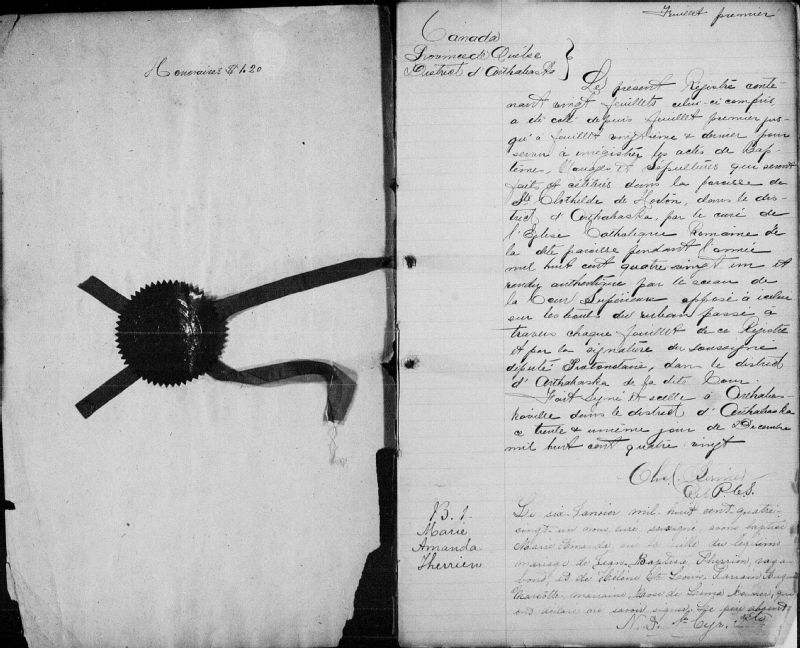 Honoraires $1.20
Feuillet premier
Canada
Province de Québec
District d'Arthabaska
Le présent Registre conte-
nant vingt feuillets celui-ci compris
a été coté depuis feuillet premier jus-
qu'à feuillet vingtième & dernier pour
servir à enrégistrer les actes de Bap-
têmes, Mariages et Sépultures qui seront
faits et célébrés dans la paroisse de
Ste Clothilde de Horton, dans le dis-
trict d'Arthabaska, par le curé de
l'Eglise Catholique Romaine de
la dite paroisse pendant l'année
mil huit cent quatre vingt un et
rendu authentique par le sceau de
la Cour Supérieure apposé à icelui
sur les bouts du ruban passé à
travers chaque feuillet de ce Registre
et par la signature du soussigné
député Protonotaire, dans le district
d'Arthabaska de la dite Cour.
Fait signé et scellé à Arthabas-
kaville dans le district d'Arthabaska
ce trente & unième jour de Décembre
mil huit cent quatre-vingt
Dép. P.C.S.
B. 1
Marie
Amanda
Therrien
Le six Janvier mil huit cent quatre-
vingt un nous curé soussigné avons baptisé
Marie Amanda, née la veille du légitime
mariage de Jean Baptiste Therrien,
et de Hélène St Louis, Parrain
Marcotte, marraine Rose de Lima
ont déclaré ne savoir signer. Le père absent.
N. D. St Cyr, Ptre